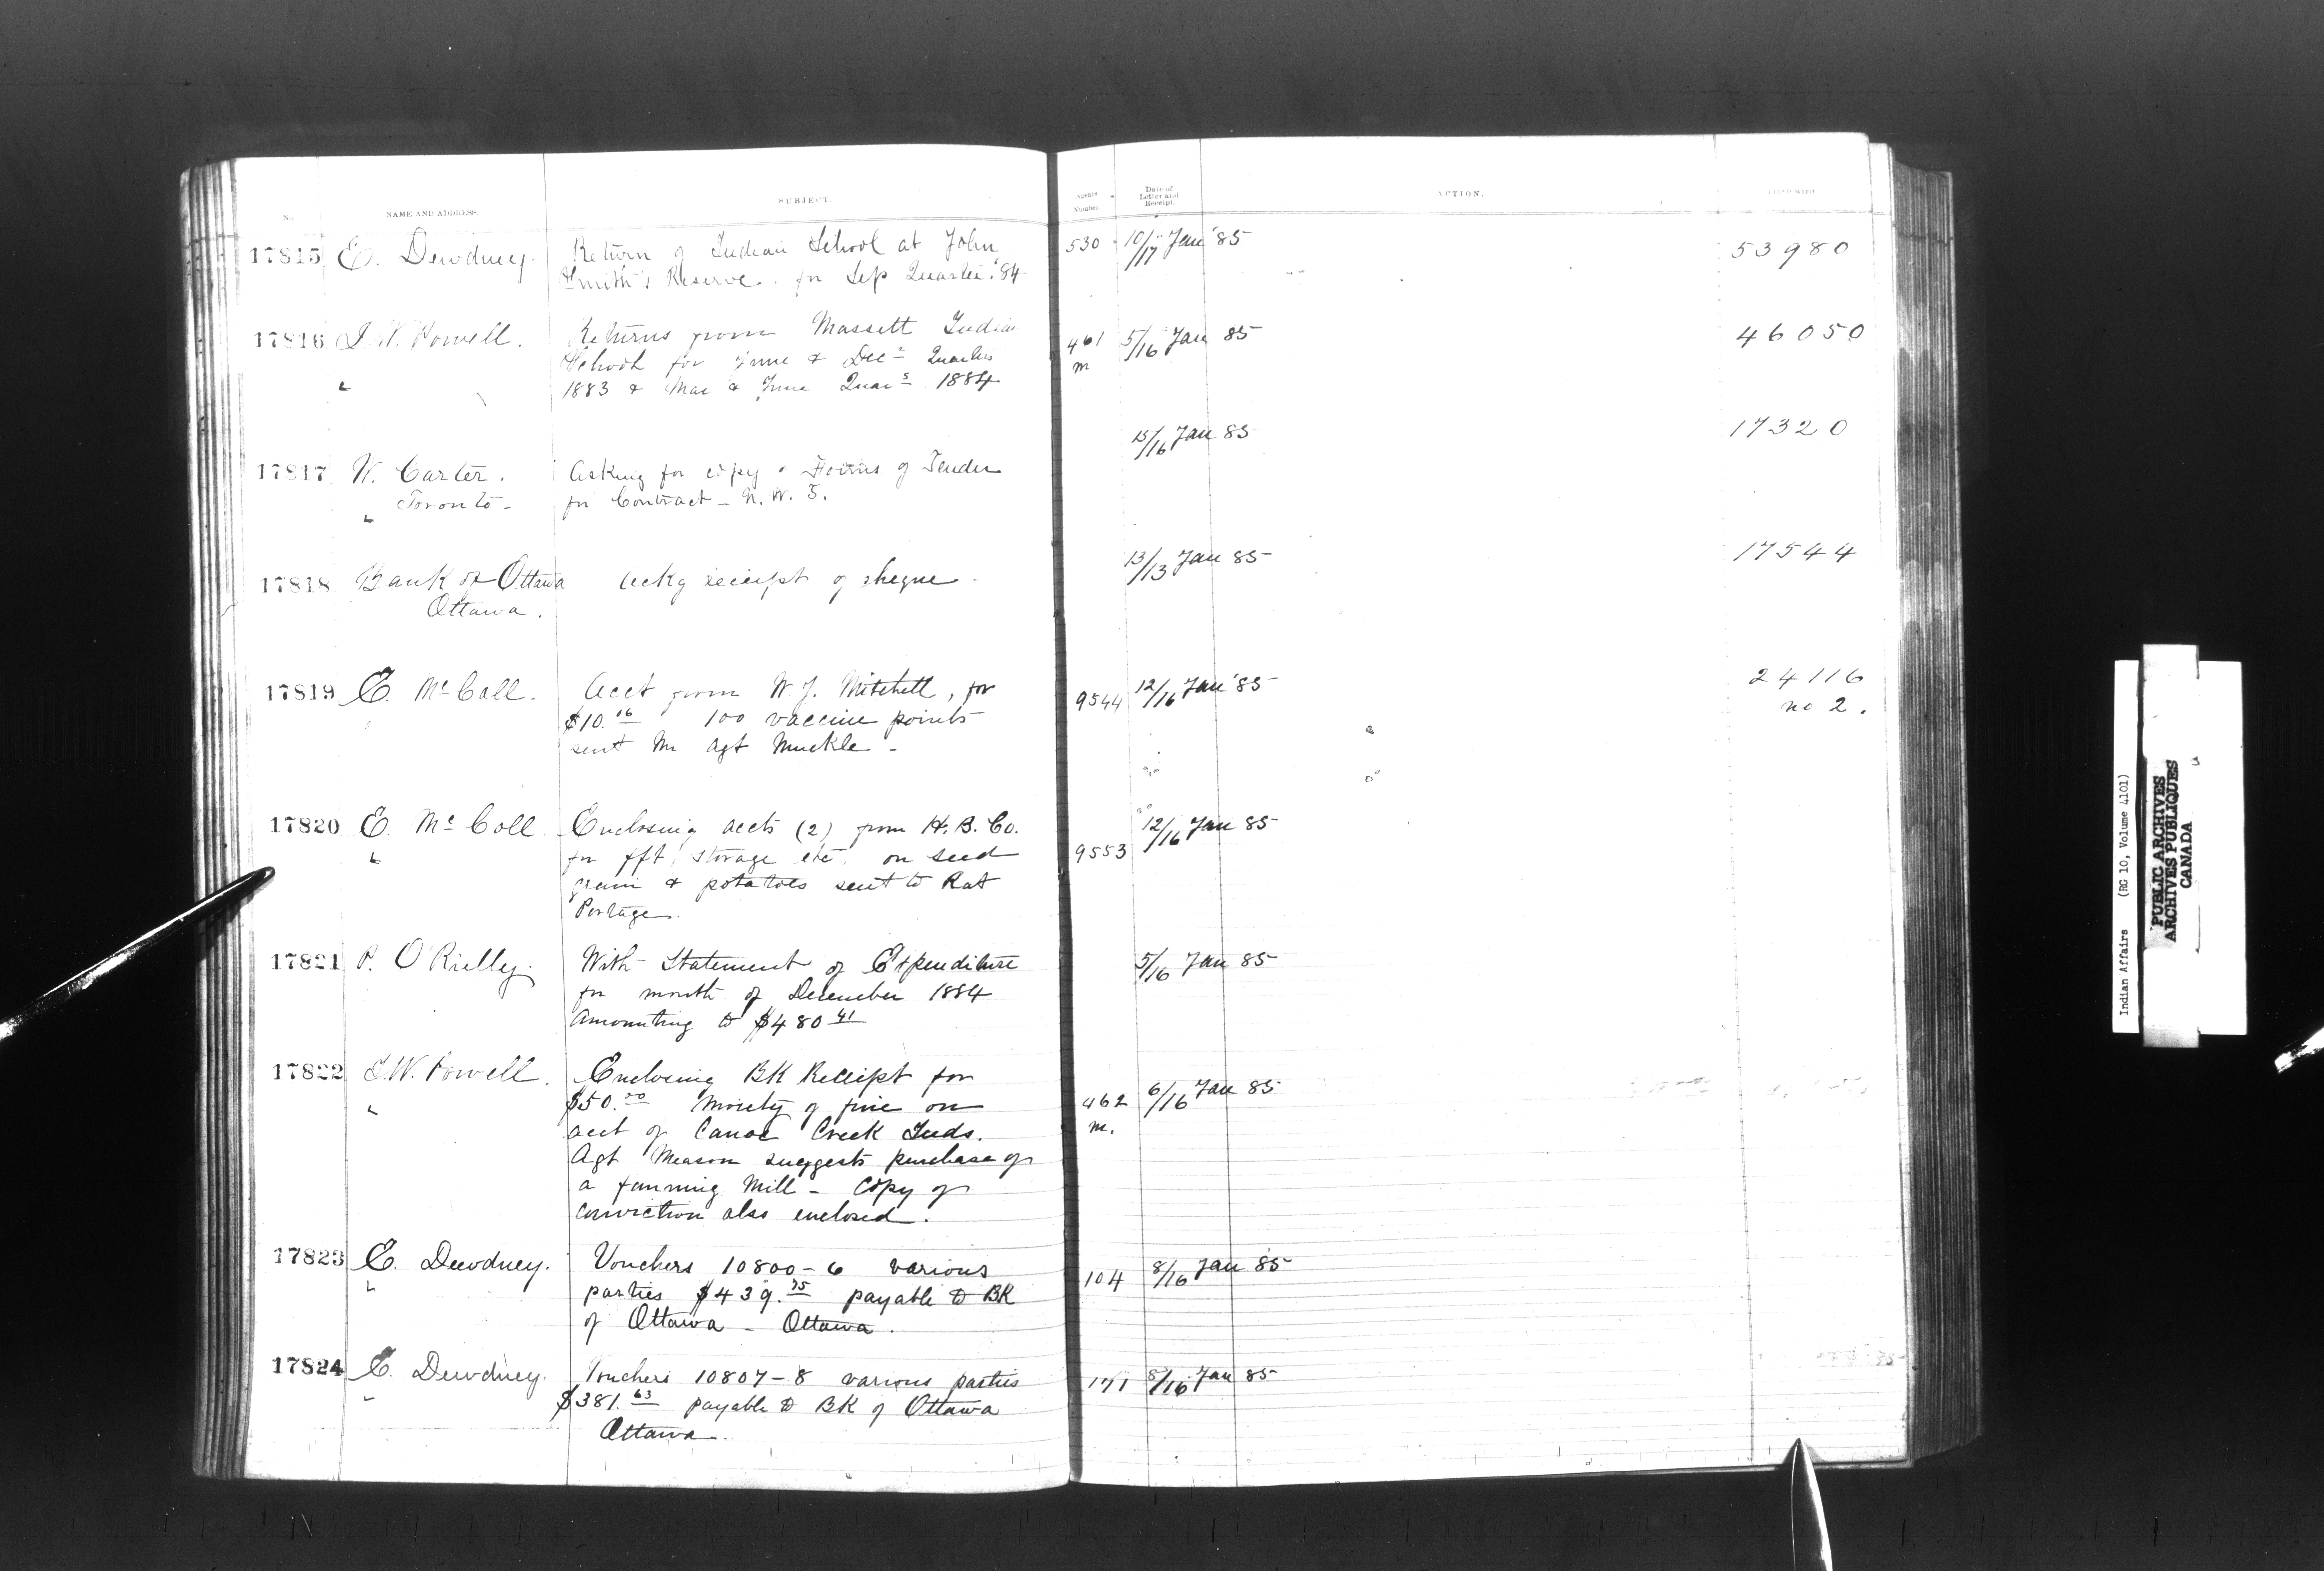 No. NAME AND ADDRESS. SUBJECT. Agents Number. Date of Letter and Receipt. ACTION. FILED WITH
17815 E. Dewdney. Return of Indian School at John 530 10/17 Jan '85 53980
Smith's Reserve. for Sep Quarter '84
17816 I. W. Powell. Returns from Massett Indian 461 5/16 Jan 85 46050
School for June & Dec Quarters m
" 1883 & Mar & June Quars 1884
15/16 Jan 85 17320
17817 W. Carter. Asking for copy of Forms of Tender
Toronto - for Contract - N. W. T.
13/13 Jan 85 17544
17818 Bank of Ottawa Ackg receipt of cheque -
Ottawa.
17819 E. McColl. Acct from W. J. Mitchell, for 9544 12/16 Jan '85 24116
$10.16 100 vaccine points no 2.
sent Mr Agt Muckle -
17820 E. McColl. Enclosing accts (2) from H. B. Co. 12/16 Jan 85
" for fft, storage etc. on seed 9553
grain & potatoes sent to Rat
Portage.
17821 P. O'Rielly. With Statement of Expenditure 5/16 Jan 85
for month of December 1884
Amounting to $480 41
17822 I. W. Powell. Enclosing BK Receipt for 6/16 Jan 85
" $50.00 moiety of fine on 462
acct of Canoe Creek Inds. m.
Agt Meason suggests purchase of
a fanning Mill - Copy of
conviction also enclosed.
17823 E. Dewdney. Vouchers 10800-6 various 104 8/16 Jan 85
" parties $439.75 payable to BK
of Ottawa - Ottawa.
17824 E. Dewdney. Vouchers 10807-8 various parties 171 8/16 Jan 85
" $381.63 payable to BK of Ottawa
Ottawa.
Indian Affairs (RG 10, Volume 4101)
PUBLIC ARCHIVES
ARCHIVES PUBLIQUES
CANADA